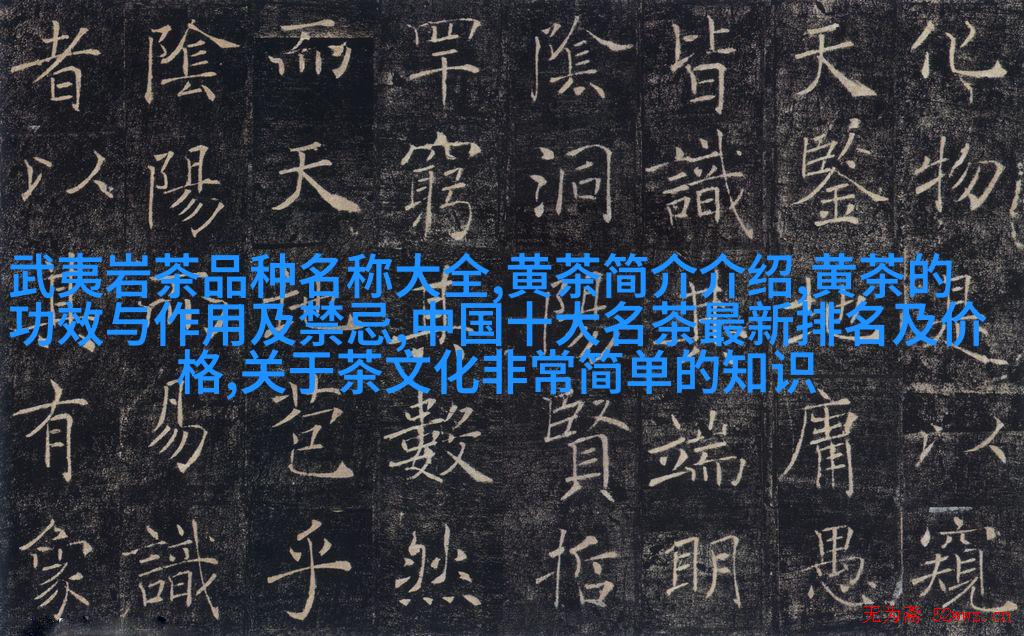 化物以窺
天鑒庸愚
皆識端明
陰洞陽賢哲
罕窮數然
而天苞乎
陰陽易識
者以有象
武夷岩茶品种名称大全,黄茶简介介绍,黄茶的
功效与作用及禁忌,中国十大名茶最新排名及价
格,关于茶文化非常简单的知识
无为斋 52wwz.cn